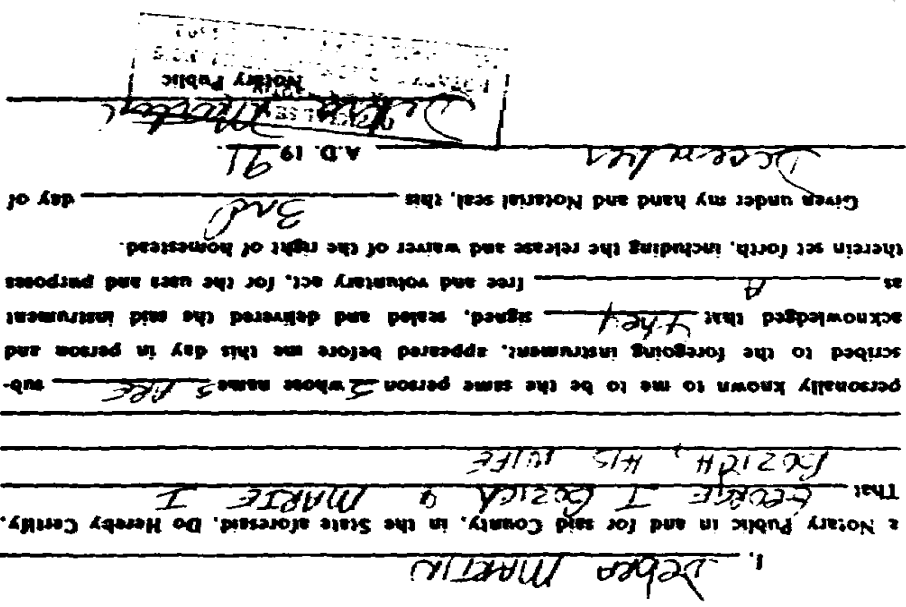 I, Debra MARTIN
a Notary Public in and for said County, in the State aforesaid, Do Hereby Certify,
That GEORGE J BOZICH & MARIE J
BOZICH, HIS WIFE
personally known to me to be the same person S whose name S ARE sub-
scribed to the foregoing instrument, appeared before me this day in person and
acknowledged that they signed, sealed and delivered the said instrument
as A free and voluntary act, for the uses and purposes
therein set forth, including the release and waiver of the right of homestead.
Given under my hand and Notarial seal, this 3rd day of
December A.D. 19 91.
Debra Martin
Notary Public